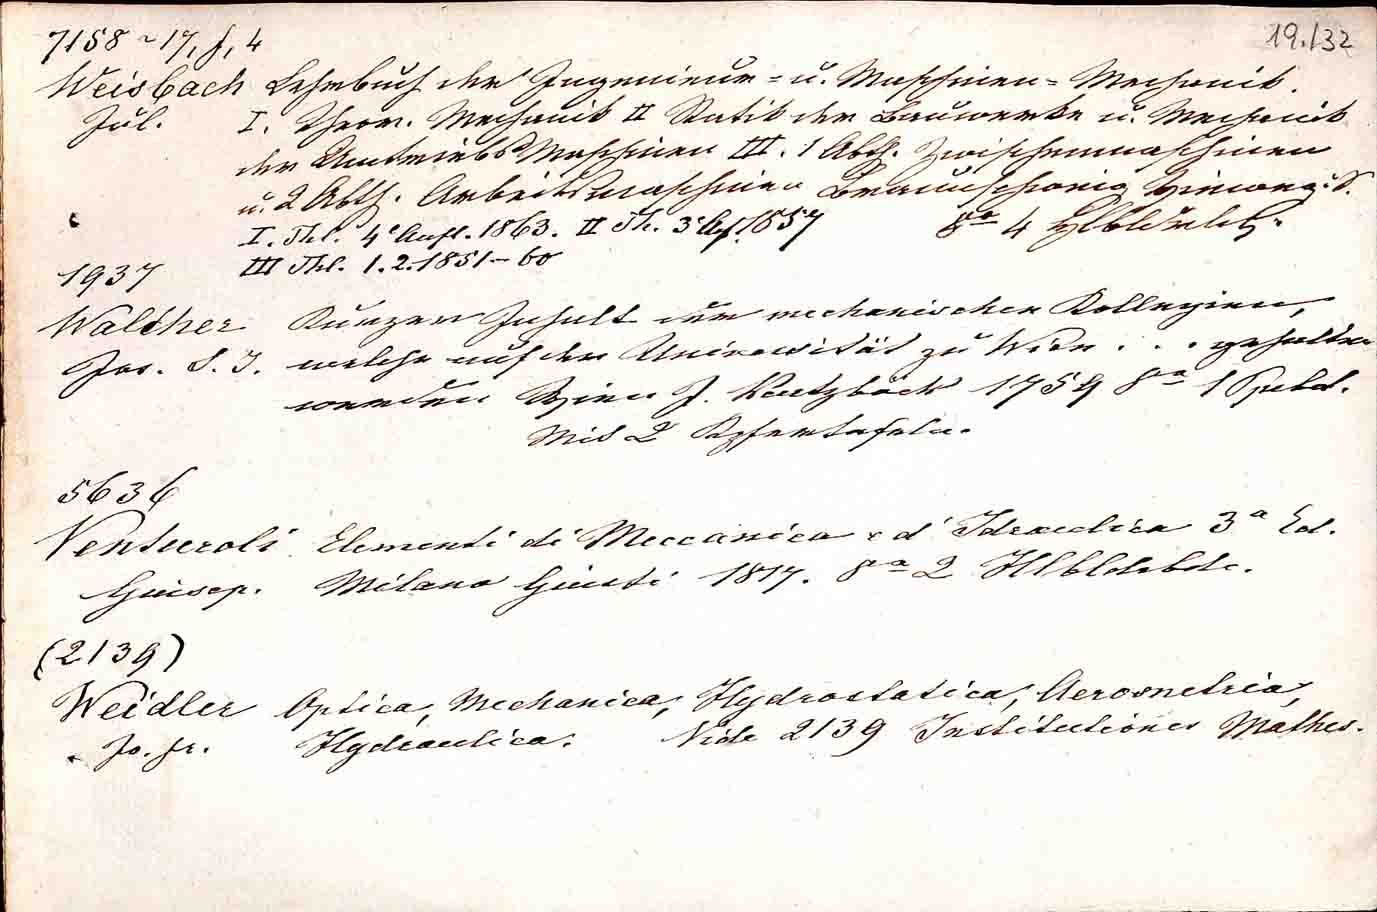 19./32
7158 ~ 17, f, 4
Weisbach Lehrbuch der Ingenieur= u. Maschinen= Mechanik.
Jul. I. Theor. Mechanik II Statik der Bauwerke u. Mechanik
der Umtriebsmaschinen III. 1 Abth. Zwischenmaschinen
u. 2 Abth. Arbeitsmaschinen Braunschweig Vieweg u. S.
I. Thl. 4e Aufl. 1863. II Th. 3e Afl. 1857 8a 4
III Thl. 1. 2. 1851–60
1937
Walcher Kurzer Inhalt der mechanischen Kollegien,
Jos. S. J. welche auf der Universität zu Wien . . . gehalten
werden Wien J. Kurtzböck 1759 8a 1
Mit 2 Kpfertafeln.
5636
Venturoli Elementi di Meccanica e d' Idraulica 3a Ed.
Giusep. Milano Giusti 1817. 8a 2 Hlbldrbde.
(2139)
Weidler Optica, Mechanica, Hydrostatica, Aerometria,
Jo. fr. Hydraulica. Vide 2139 Institutiones Mathes.